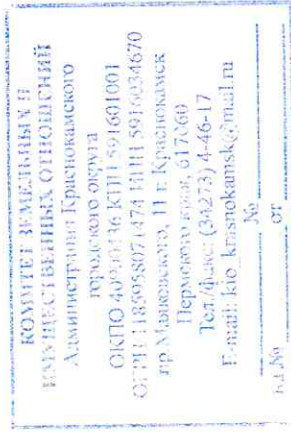 КОМИТЕТ ЗЕМЕЛЬНЫХ И
ИМУЩЕСТВЕННЫХ ОТНОШЕНИЙ
Администрации Краснокамского
городского округа
КПП 591601001
ОГРН 1185958071474 ИНН 5916034670
пр.Маяковского, 11 г. Краснокамск
Пермского края, 617060
Тел./факс: (34273) 4-46-17
E-mail: kio_krasnokamsk@mail.ru
№
от